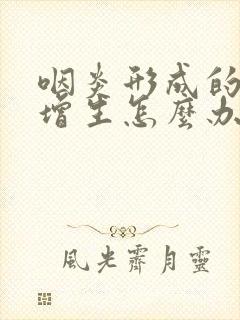 咽炎形成的
增生怎麼办
風光霽月靈